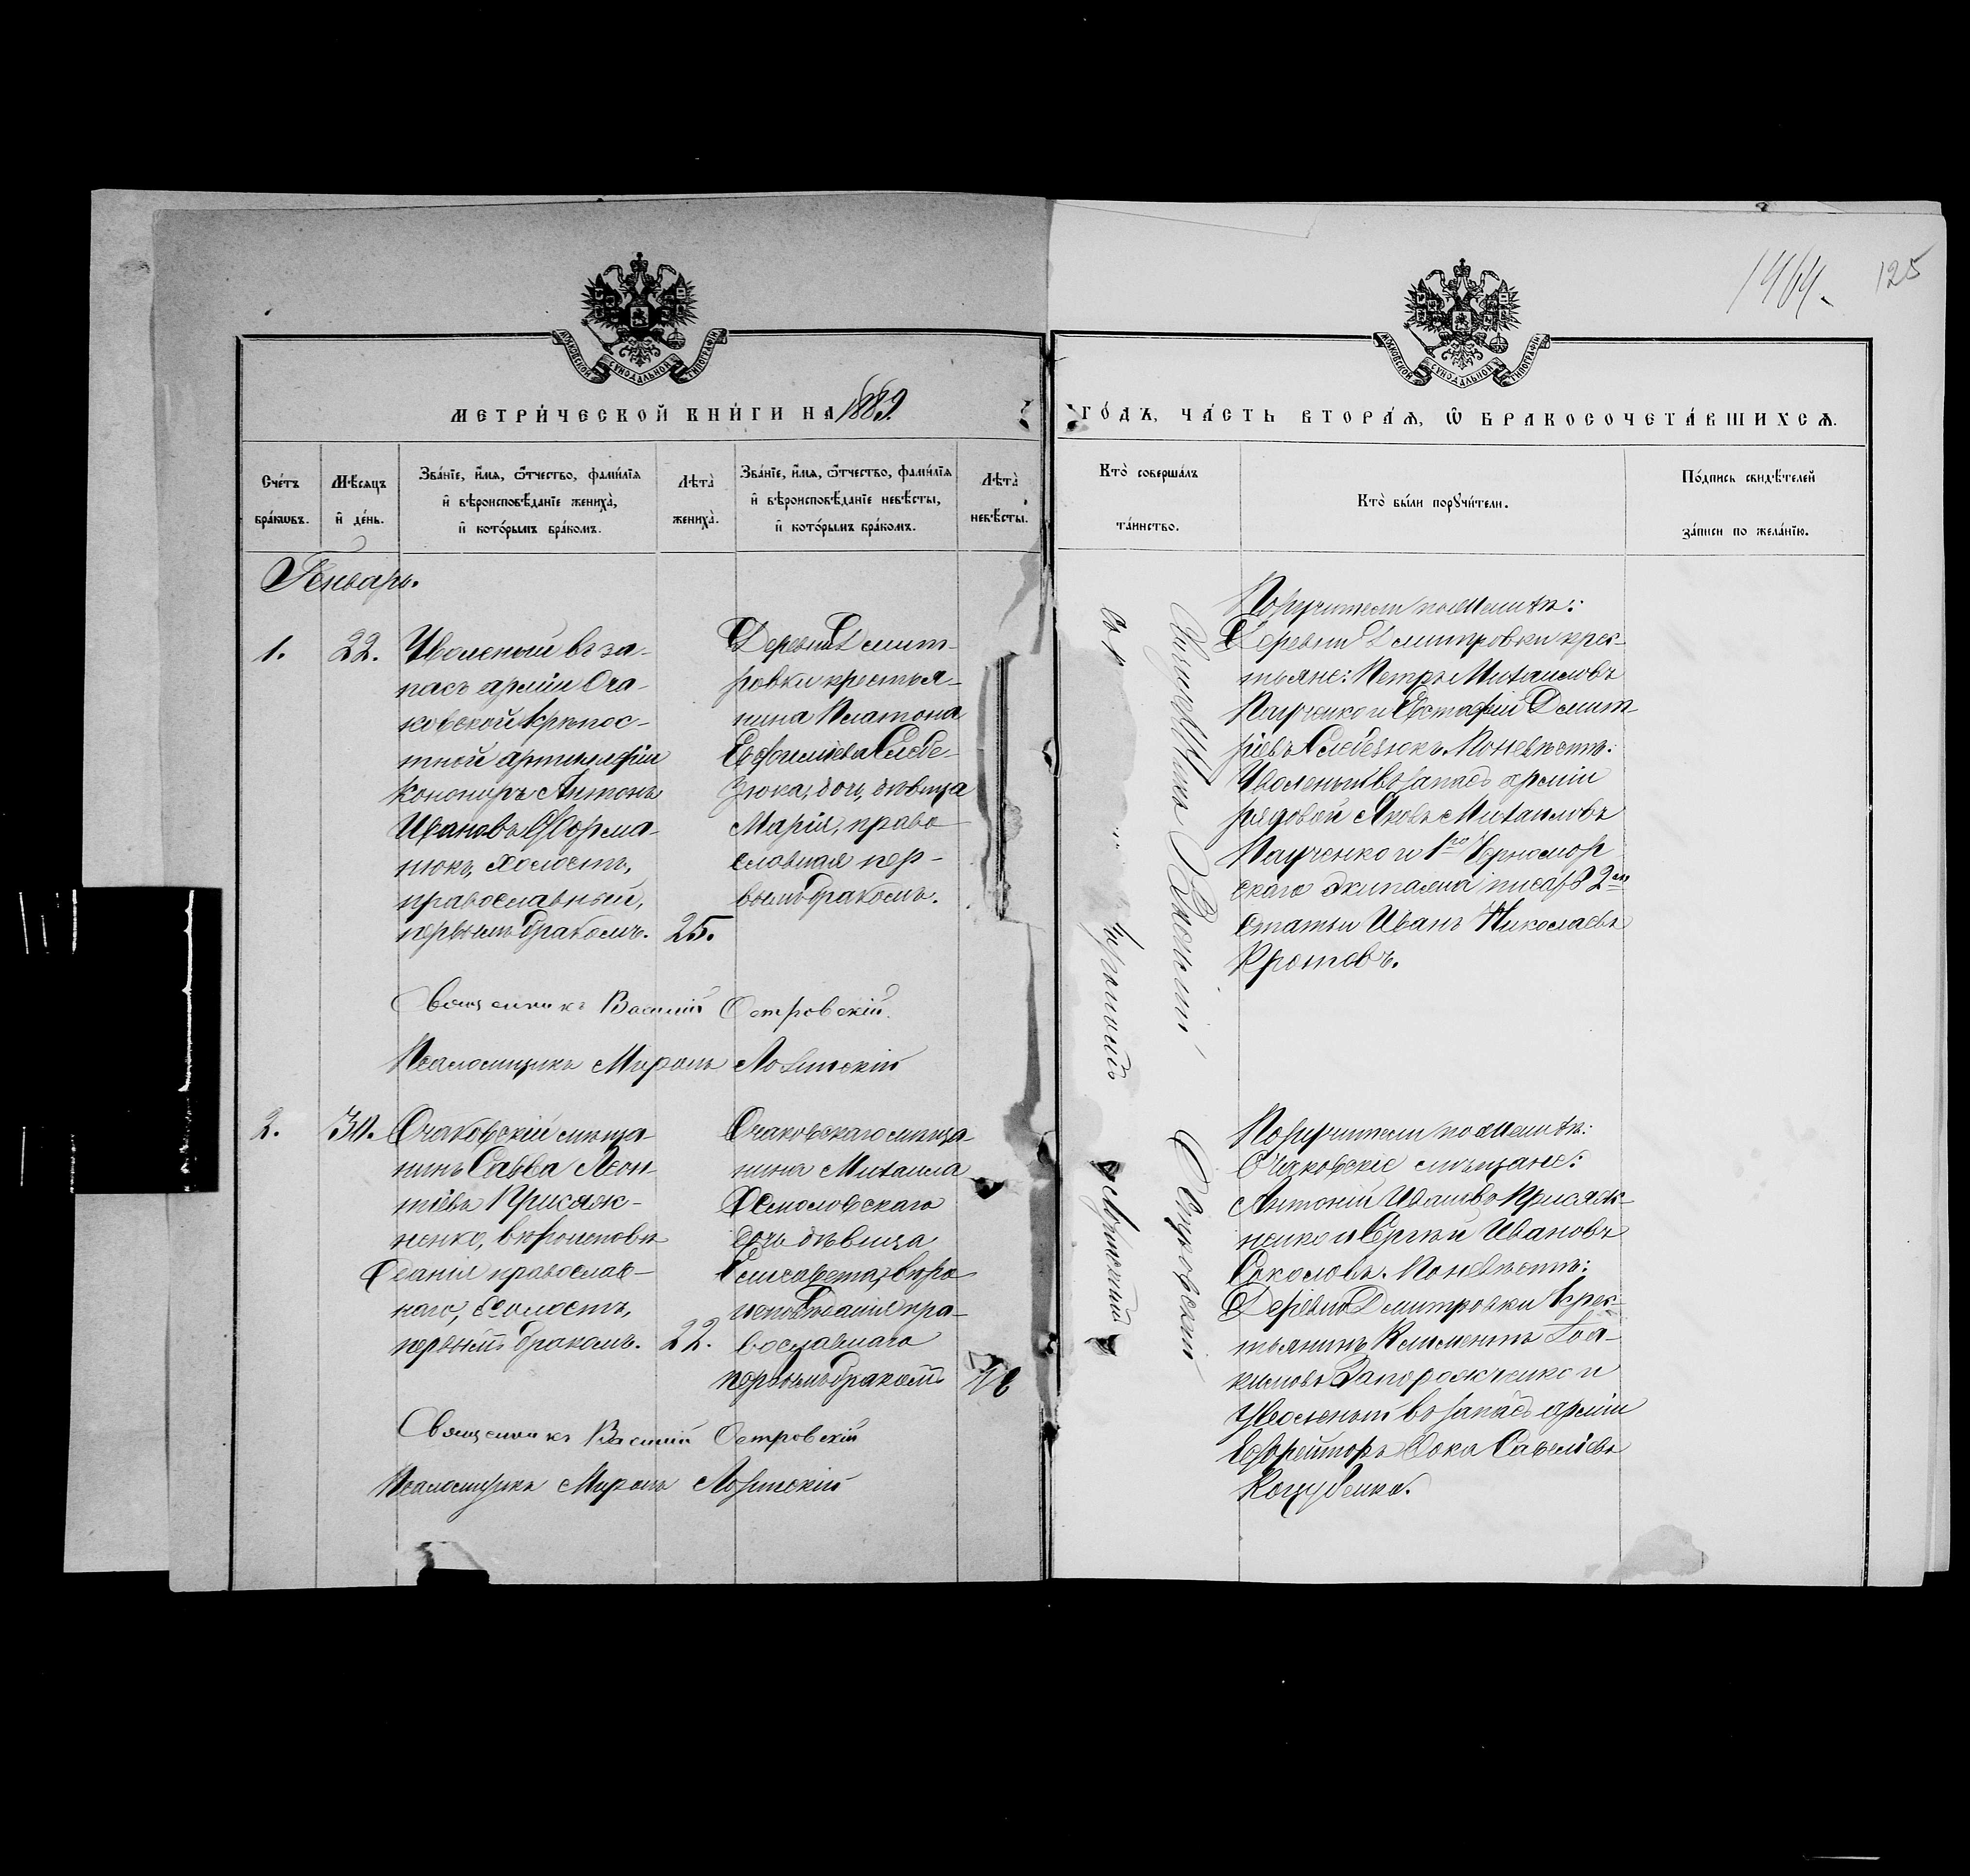 1464. 125
МОСКОВСКОЙ СУНОДАЛЬНОЙ ТИПОГРАФІИ
МОСКОВСКОЙ СУНОДАЛЬНОЙ ТИПОГРАФІИ
МЕТРИ́ЧЕСКОЙ КНИ́ГИ НА 1889
ГО́ДЪ, ЧА́СТЬ ВТОРА́Я, Ѡ҆ БРАКОСОЧЕТА́ВШИХСЯ.
Сче́тъ бра́кѡвъ.
Мѣ́сяцъ и҆ де́нь.
Зва́нїе, и҆́мя, ѻ҆́тчество, фами́лїя
и҆ вѣроисповѣ́данїе жениха̀,
и҆ кото́рымъ бра́комъ.
Лѣта̀ жениха̀.
Зва́нїе, и҆́мя, ѻ҆́тчество, фами́лїя
и҆ вѣроисповѣ́данїе невѣ́сты,
и҆ кото́рымъ бра́комъ.
Лѣта̀ невѣ́сты.
Кто̀ соверша́лъ
та́инство.
Кто̀ бы́ли порꙋчи́тели.
По́дпись свидѣ́телей
за́писи по жела́нїю.
Генварь.
1. 22.
Уволеный въ за-
пасъ арміи Оча-
ковской крѣпос-
тной артиллеріи
Канониръ Антонъ
Ивановъ
нюкъ, холостъ,
православный,
первымъ бракомъ. 25.
Деревни Дмит-
ровки крестья-
нина Платона
Евфиміева Слебе-
зюка, дочь, дѣвица
Марія, право
славная пер-
вымъ бракомъ.
Поручители по женихѣ:
Деревни Дмитровки крес-
тьяне: Петръ Михаиловъ
Паученко и Евстафій Дмит-
ріевъ Слебезюкъ. По невѣстѣ:
Уволеный въ запасъ арміи
рядовой Яковъ Михаиловъ
Паученко и 1го Черномор
скаго экипажа писарь 2ой
статьи Иванъ Николаевъ
Кротовъ.
Священникъ Василій Островскій.
Псаломщикъ Миронъ Лозинскій
2. 30.
Очаковскій мѣща-
нинъ Савва Леон-
тіевъ Присяж-
ненко, вѣроисповѣ
данія православ-
наго, холостъ,
первымъ бракомъ. 22.
Очаковскаго мѣща
нина Михаила
Осмоловскаго
дочь дѣвица
Елисавета, вѣро
исповѣданія пра-
вославнаго
первымъ бракомъ
Поручители по женихѣ:
Очаковскіе мѣщане:
Антоній Ивановъ Присяж-
ненко и Сергѣй Ивановъ
Соколовъ. По невѣстѣ:
Деревни Дмитровки крес-
тьянинъ Климентъ Іоа-
кимовъ Запорожченко и
Уволеный въ запасъ арміи
Ефрейторъ Фока Савеліевъ
Коцубенко.
Священникъ Василій Островскій
Псаломщикъ Миронъ Лозинскій
Священникъ Василій Островскій